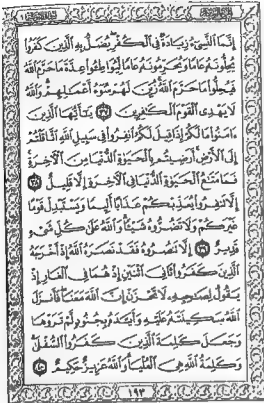 إِنَّمَا ٱلنَّسِىٓءُ زِيَادَةٌ فِى ٱلْكُفْرِ يُضَلُّ بِهِ ٱلَّذِينَ كَفَرُوا۟
يُحِلُّونَهُۥ عَامًا وَيُحَرِّمُونَهُۥ عَامًا لِّيُوَاطِـُٔوا۟ عِدَّةَ مَا حَرَّمَ ٱللَّهُ
فَيُحِلُّوا۟ مَا حَرَّمَ ٱللَّهُ زُيِّنَ لَهُمْ سُوٓءُ أَعْمَـٰلِهِمْ وَٱللَّهُ
لَا يَهْدِى ٱلْقَوْمَ ٱلْكَـٰفِرِينَ ٣٧ يَـٰٓأَيُّهَا ٱلَّذِينَ
ءَامَنُوا۟ مَا لَكُمْ إِذَا قِيلَ لَكُمُ ٱنفِرُوا۟ فِى سَبِيلِ ٱللَّهِ ٱثَّاقَلْتُمْ
إِلَى ٱلْأَرْضِ أَرَضِيتُم بِٱلْحَيَوٰةِ ٱلدُّنْيَا مِنَ ٱلْـَٔاخِرَةِ
فَمَا مَتَـٰعُ ٱلْحَيَوٰةِ ٱلدُّنْيَا فِى ٱلْـَٔاخِرَةِ إِلَّا قَلِيلٌ ٣٨
إِلَّا تَنفِرُوا۟ يُعَذِّبْكُمْ عَذَابًا أَلِيمًا وَيَسْتَبْدِلْ قَوْمًا
غَيْرَكُمْ وَلَا تَضُرُّوهُ شَيْـًٔا وَٱللَّهُ عَلَىٰ كُلِّ شَىْءٍ
قَدِيرٌ ٣٩ إِلَّا تَنصُرُوهُ فَقَدْ نَصَرَهُ ٱللَّهُ إِذْ أَخْرَجَهُ
ٱلَّذِينَ كَفَرُوا۟ ثَانِىَ ٱثْنَيْنِ إِذْ هُمَا فِى ٱلْغَارِ إِذْ
يَقُولُ لِصَـٰحِبِهِۦ لَا تَحْزَنْ إِنَّ ٱللَّهَ مَعَنَا فَأَنزَلَ
ٱللَّهُ سَكِينَتَهُۥ عَلَيْهِ وَأَيَّدَهُۥ بِجُنُودٍ لَّمْ تَرَوْهَا
وَجَعَلَ كَلِمَةَ ٱلَّذِينَ كَفَرُوا۟ ٱلسُّفْلَىٰ
وَكَلِمَةُ ٱللَّهِ هِىَ ٱلْعُلْيَا وَٱللَّهُ عَزِيزٌ حَكِيمٌ ٤٠
١٩٣